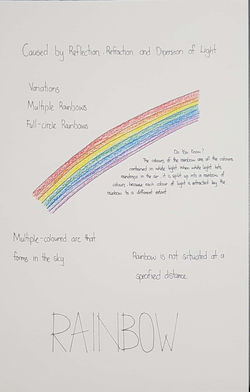 Caused by Reflection, Refraction and Dispersion of Light
Variations
Multiple Rainbows
Full-circle Rainbows
Do You Know?
The colours of the rainbow are all the colours
contained in white light. When white light hits
raindrops in the air, it is split up into a rainbow of
colours, because each colour of light is refracted by the
raindrop to a different extent.
Multiple-coloured arc that
forms in the sky
Rainbow is not situated at a
specified distance.
RAINBOW